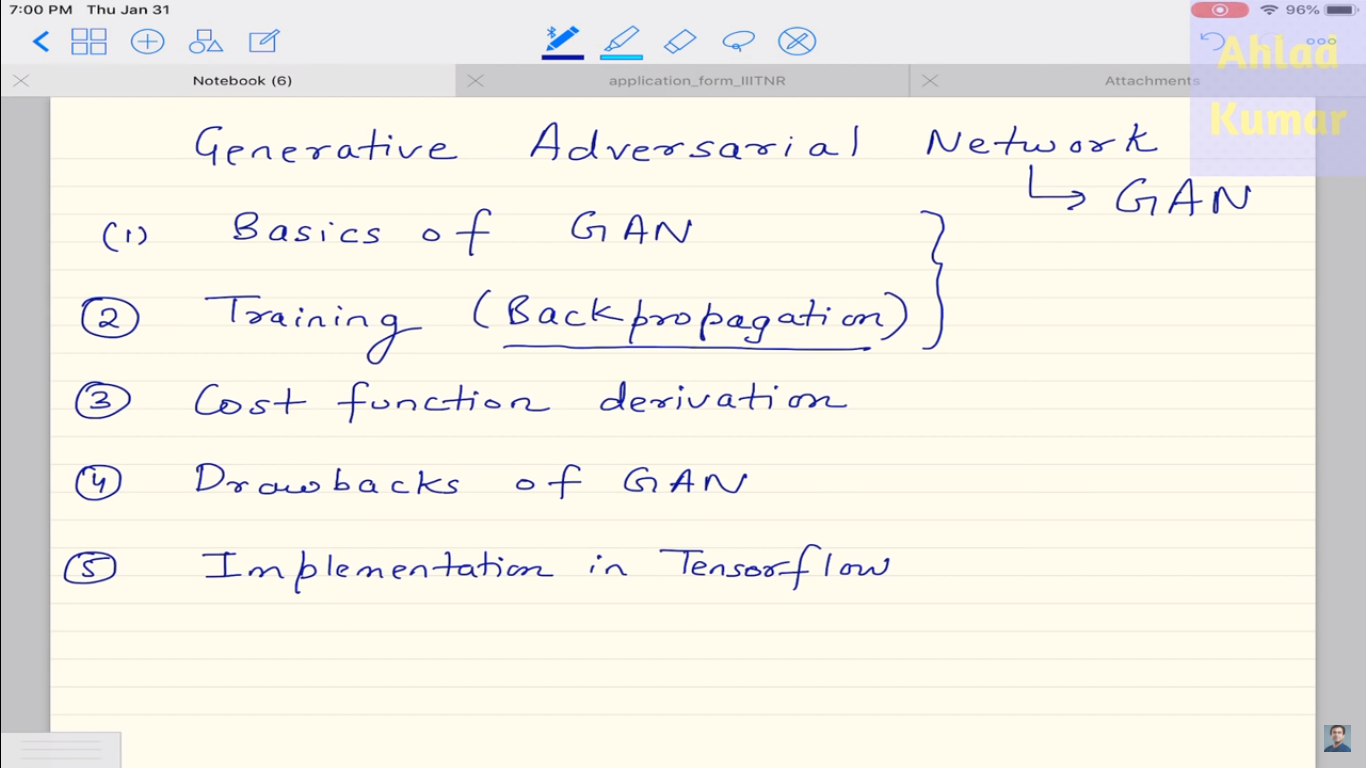 7:00 PM Thu Jan 31
96%
Ahlad
Kumar
Notebook (6)
application_form_IIITNR
Attachments
Generative Adversarial Network
↳ GAN
(1) Basics of GAN
2 Training (Backpropagation)
3 Cost function derivation
4 Drawbacks of GAN
5 Implementation in Tensorflow